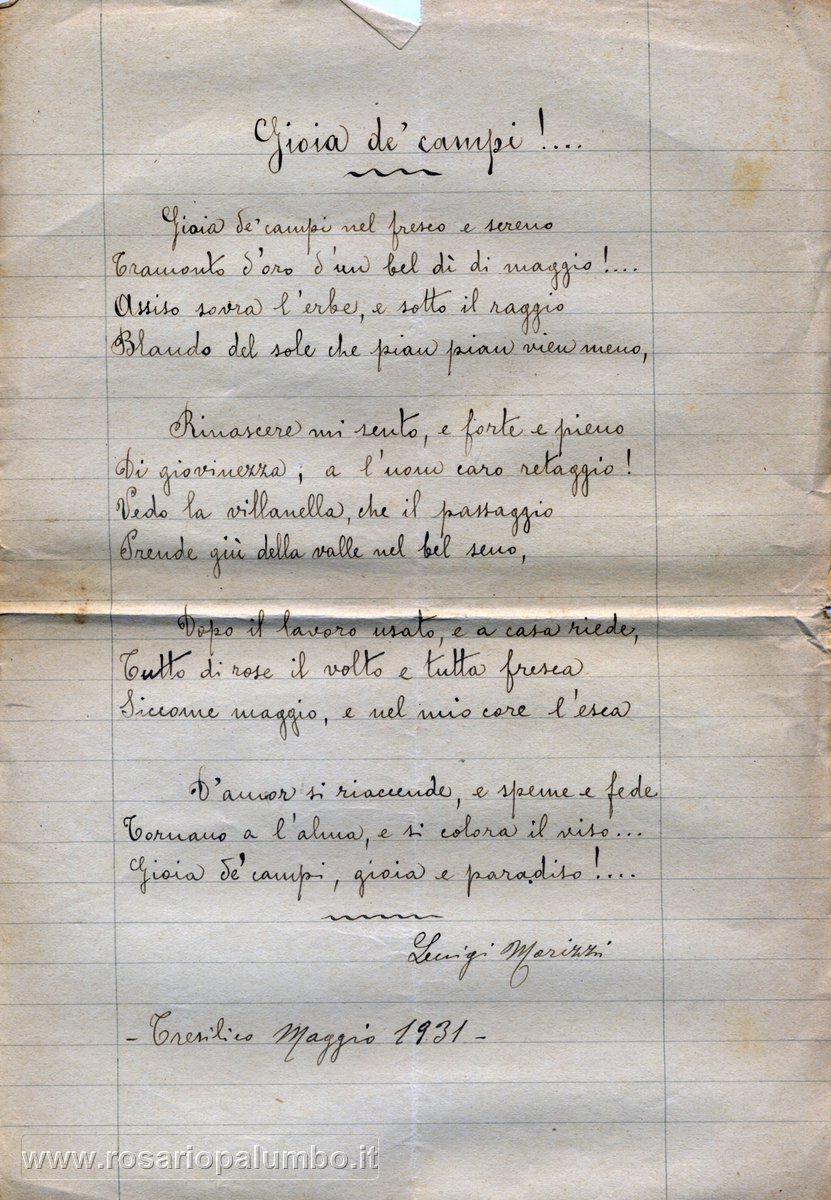 Gioia de' campi!....
Gioia de' campi nel fresco e sereno
Tramonto d'oro d'un bel dì di maggio!....
Assiso sovra l'erbe, e sotto il raggio
Blando del sole che pian pian vien meno,
Rinascere mi sento, e forte e pieno
Di giovinezza, a l'uom caro retaggio!
Vedo la villanella, che il passaggio
Prende giù della valle nel bel seno,
Dopo il lavoro usato, e a casa riede,
Tutto di rose il volto e tutta fresca
Siccome maggio, e nel mio core l'esca
D'amor si riaccende, e speme e fede
Tornano a l'alma, e si colora il viso...
Gioia de' campi, gioia e paradiso!....
Luigi Morizzi
- Tresilico Maggio 1931 -
www.rosariopalumbo.it